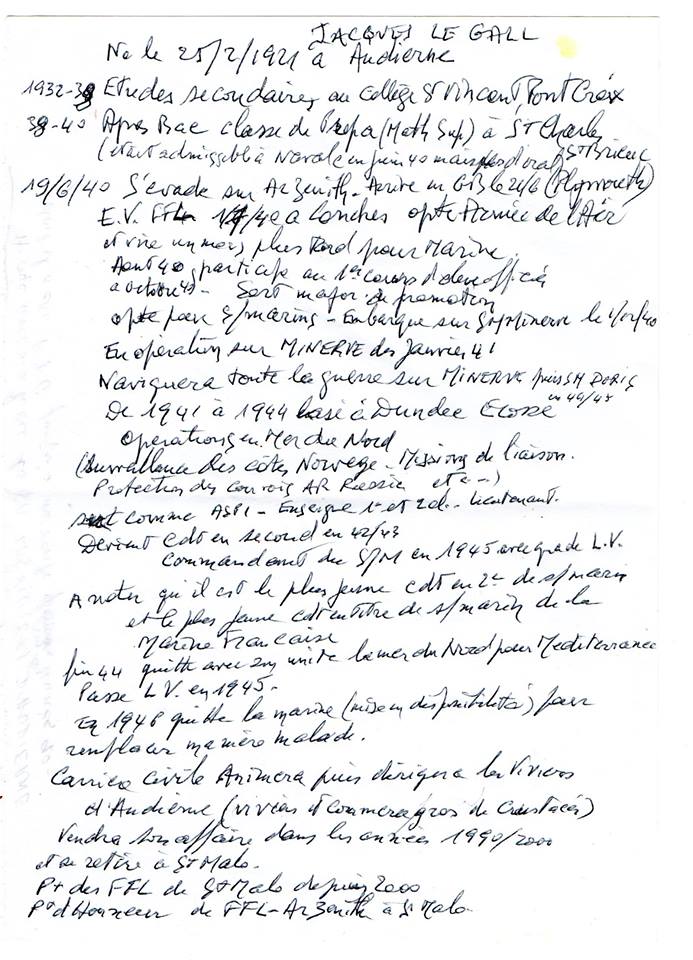 JACQUES LE GALL
Ne le 25/2/1921 à Audierne
1932-39 Etudes secondaires au collège St Vincent Pont Croix
39-40 Apres Bac classe de Prepa (Math Sup) à St Charles
(etait admissible à Navale en juin 40 mais pas d'oral) St Brieuc
19/6/40 S'evade sur Ar Zenith - Arrive en GB le (Plymouth)
E.V. FFL 1/7/40 a Londres opte Armée de l'Air
et vire un mois plus tard pour Marine
Aout 40 participe au 1er cours d'eleve officier
a octobre 40 - Sort major de promotion
opte pour s/marins - Embarque sur SM Minerve le
En opération sur MINERVE des Janvier 41
Naviguera toute la guerre sur MINERVE puis SM DORIS
De 1941 à 1944 basé à Dundee Ecosse
operations en Mer du Nord
(Surveillance des côtes Norvege - Missions de liaison.
Protection des convois AR Russie etc --)
comme ASPI - Enseigne 1e et 2e - Lieutenant.
Devient Cdt en second en 42/43
Commandant du S/M en 1945 avec grade L.V.
A noter qu'il est le plus jeune cdt en 2e de s/marin
et le plus jeune cdt en titre de s/marin de la
Marine Francaise
fin 44 quitte avec son unité la mer du Nord pour Mediterranée
Passe L.V. en 1945.
En 1946 quitte la marine (mise en disponibilité) pour
remplacer ma mère malade.
Carriere Civile Animera puis dirigera les Viviers
d'Audierne (viviers et commerce gros de Crustacés)
Vendra son affaire dans les années 1990/2000
et se retire à St Malo.
Pt des FFL de St Malo depuis 2000
Pt d'Honneur de FFL-Ar Zenith à St Malo